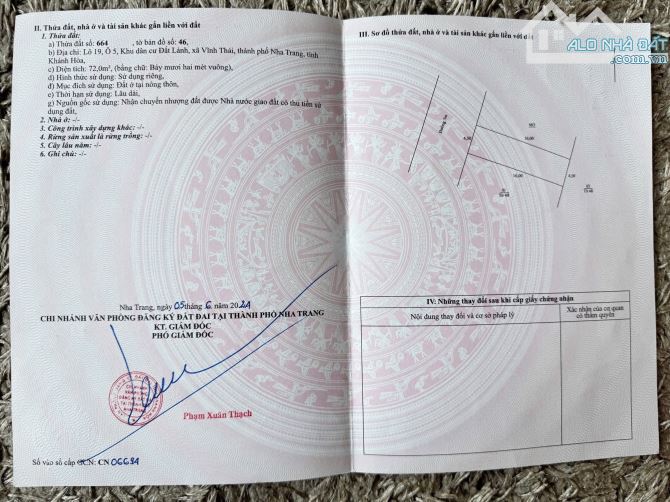 II. Thửa đất, nhà ở và tài sản khác gắn liền với đất
1. Thửa đất:
a) Thửa đất số: 664, tờ bản đồ số: 46,
b) Địa chỉ: Lô 19, Ô 5, Khu dân cư Đất Lành, xã Vĩnh Thái, thành phố Nha Trang, tỉnh
Khánh Hòa,
c) Diện tích: 72,0m², (bằng chữ: Bảy mươi hai mét vuông),
d) Hình thức sử dụng: Sử dụng riêng,
đ) Mục đích sử dụng: Đất ở tại nông thôn,
e) Thời hạn sử dụng: Lâu dài,
g) Nguồn gốc sử dụng: Nhận chuyển nhượng đất được Nhà nước giao đất có thu tiền sử
dụng đất,
2. Nhà ở: -/-
3. Công trình xây dựng khác: -/-
4. Rừng sản xuất là rừng trồng: -/-
5. Cây lâu năm: -/-
6. Ghi chú: -/-
Nha Trang, ngày 05 tháng 6 năm 2021
CHI NHÁNH VĂN PHÒNG ĐĂNG KÝ ĐẤT ĐAI TẠI THÀNH PHỐ NHA TRANG
KT. GIÁM ĐỐC
PHÓ GIÁM ĐỐC
CHI NHÁNH
VĂN PHÒNG
ĐĂNG KÝ ĐẤT ĐAI
TẠI THÀNH PHỐ
NHA TRANG
Phạm Xuân Thạch
Số vào sổ cấp GCN: CN 06681
III. Sơ đồ thửa đất, nhà ở và tài sản khác gắn liền với đất
ALO NHÀ ĐẤT
Đường
4,50
16,00
16,00
4,50
IV. Những thay đổi sau khi cấp giấy chứng nhận
Nội dung thay đổi và cơ sở pháp lý
Xác nhận của cơ quan
có thẩm quyền